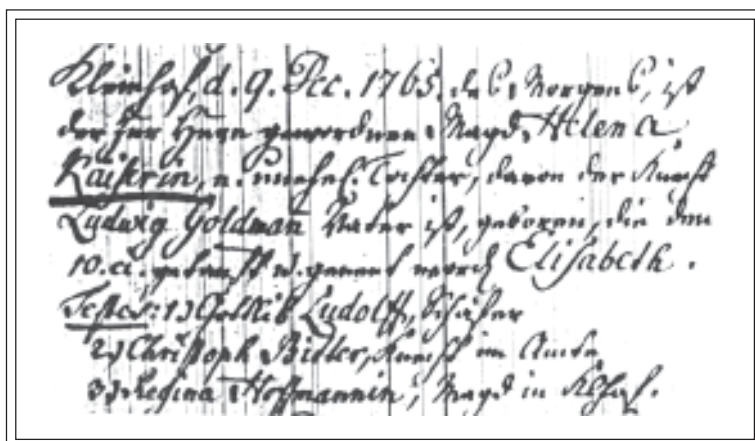 Kleinhof, d. 9. Dec. 1765, des Morgens, ist
der zur Hure gewordnen Magd, Helena
Kaiserin, e. unehel. Tochter, davon der Knecht
Ludwig Goldman Vater ist, geboren, die den
10. ei. getauft u. genent word Elisabeth.
Testes: 1) Gottlib Ludolff, Schäfer
2) Christoph Bidler, Knecht im Amte
3) Regina Hoffmannin, Magd in Klhof.